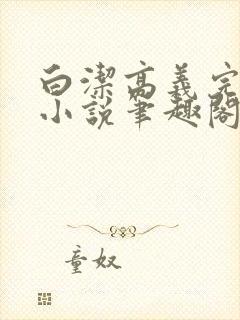 白潔高義完
小說筆趣閣
童奴